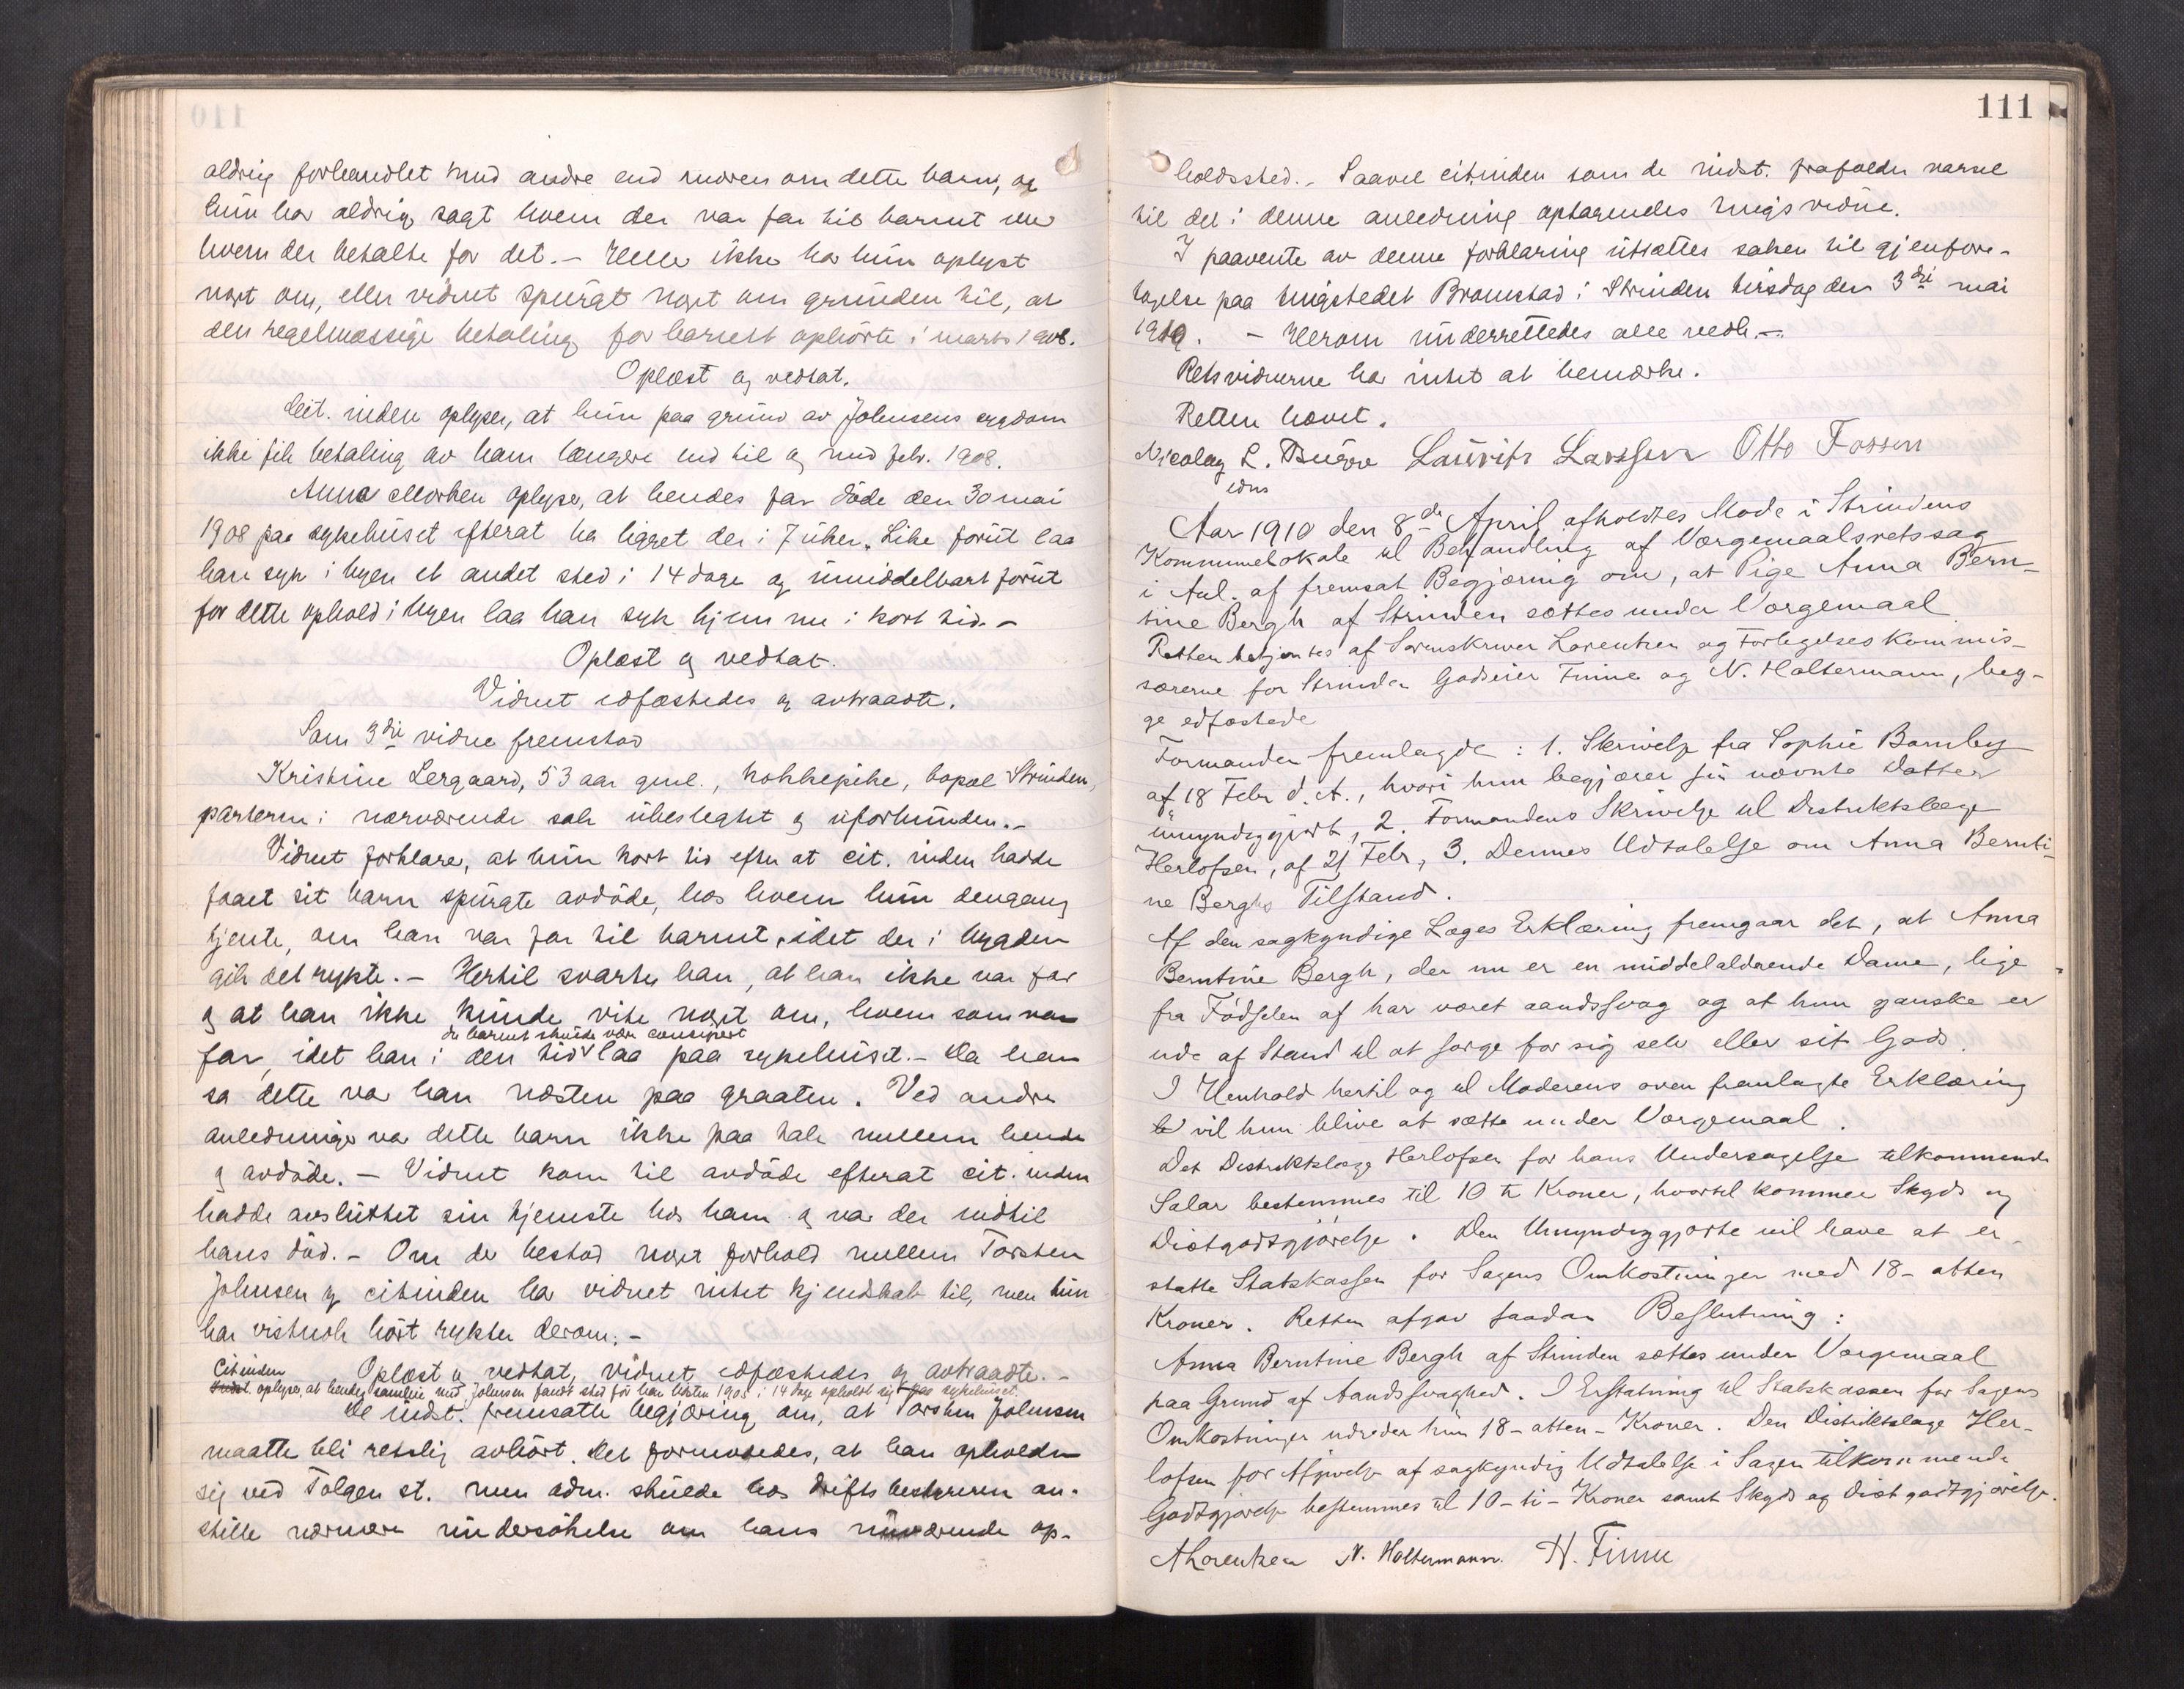 aldrig forhandlet med andre end moren om dette barn, og
hun har aldrig sagt hvem der var far til barnet eller
hvem der betalte for det. – Heller ikke har hun oplyst
noget om, eller vidnet spurgt noget om grunden til, at
den regelmæssige betaling for barnet ophørte i marts 1908.
Oplæst og vedtat.
Cit. inden oplyser, at hun paa grund av Johnsens sygdom
ikke fik betaling av ham længere end til og med febr. 1908.
Anna Morken oplyser, at hendes far døde den 30 mai
1908 paa sykehuset efterat ha ligget der i 7 uker. Like forut laa
han syk i byen et andet sted i 14 dage og umiddelbart forut
for dette ophold i byen laa han syk hjemme i kort tid. –
Oplæst og vedtat.
Vidnet edfæstedes og avtraadte.
Som 3die vidne fremstod
Kristine Lergaard, 53 aar gml., kokkepike, bopæl Strinden,
parterne i nærværende sak ubeslegtet og uforbunden. –
Vidnet forklarer, at hun kort tid efter at cit. inden hadde
faaet sit barn spurgte avdøde, hos hvem hun dengang
tjente, om han var far til barnet, idet der i bygden
gik det rykte. – Hertil svarte han, at han ikke var far
og at han ikke kunde vite noget om, hvem som var
da barnet skulde være concipiert
far, idet han i den tid laa paa sykehuset. – Da han
sa dette var han næsten paa graaten. Ved andre
anledninger var dette barn ikke paa tale mellem hende
og avdøde. – Vidnet kom til avdøde efterat cit. inden
hadde avsluttet sin tjeneste hos ham og var der indtil
hans død. – Om der bestod noget forhold mellem Torsten
Johnsen og citinden har vidnet intet kjendskab til, men hun
har vistnok hørt rykter derom. –
Citinden Oplæst og vedtat, vidnet edfæstedes og avtraadte. –
oplyser, at hendes samleie med Johnsen fandt sted før han høsten 1905 i 14 dage opholdt sig paa sykehuset.
De indst. fremsatte begjæring om, at Torsten Johnsen
maatte bli retslig avhørt. Det formodedes, at han opholder
sig ved Tolgen st. men adm. skulde hos driftsbestyreren an-
stille nærmere undersøkelse om hans nuværende op-
111
holdssted. – Saavel citinden som de indst. frafalder varsel
til det i denne anledning optagendes tingsvidne.
I paavente av denne forklaring utsættes saken til gjenfore-
tagelse paa tingstedet Bromstad i Strinden tirsdag den 3die mai
1910. – Herom underrettedes alle vedk. –
Retsvidnerne har intet at bemærke.
Retten hævet.
Nicolay L. Bugge Lauritz Larssen Otto Fossen
edns
Aar 1910 den 8de April afholdtes Møde i Strindens
Kommunelokale til Behandling af Værgemaalsretssag
i Anl. af fremsat Begjæring om, at Pige Anna Bern-
tine Bergh af Strinden sættes under Værgemaal
Retten betjentes af Sorenskriver Lorentzen og Forligelseskommis-
særerne for Strinden Godseier Finne og N. Holtermann, beg-
ge edfæstede
Formanden fremlagde : 1. Skrivelse fra Sophie Bomberg
af 18 Febr d. A., hvori hun begjærer sin nævnte Datter
umyndiggjort, 2. Formandens Skrivelse til Distriktslæge
Herlofsen, af 21 Febr, 3. Dennes Udtalelse om Anna Bernti-
ne Berghs Tilstand.
Af den sagkyndige Læges Erklæring fremgaar det, at Anna
Berntine Bergh, der nu er en middelaldrende Dame, lige
fra Fødselen af har været aandssvag og at hun ganske er
ude af Stand til at sørge for sig selv eller sit Gods.
I Henhold hertil og til Moderens oven fremlagte Erklæring
vil hun blive at sætte under Værgemaal.
Det Distriktslæge Herlofsen for hans Undersøgelse tilkommende
Salær bestemmes til 10 ti Kroner, hvortil kommer Skyds og
Diætgodtgjørelse. Den Umyndiggjorte vil have at er-
statte Statskassen for Sagens Omkostninger med 18 – atten
Kroner. Retten afgav saadan Beslutning :
Anna Berntine Bergh af Strinden sættes under Værgemaal
paa Grund af Aandssvaghed. I Erstatning til Statskassen for Sagens
Omkostninger udreder hun 18 – atten – Kroner. Den Distriktslæge Her-
lofsen for Afgivelse af sagkyndig Udtalelse i Sagen tilkommende
Godtgjørelse bestemmes til 10 – ti – Kroner samt Skyds og Diætgodtgjørelse.
ALorentzen N. Holtermann. H. Finne